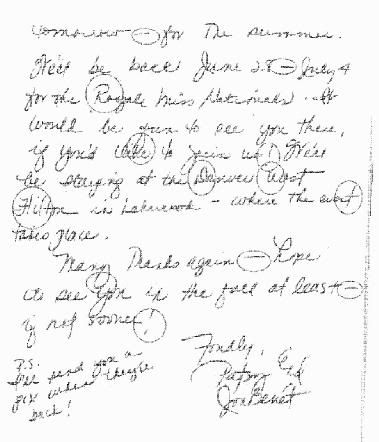 tomorrow — for the summer.
We'll be back June 28 — July 4
for the Royale Miss Nationals. It
would be fun to see you there,
if you'd like to join us! We're
be staying at the Denver West
Hilton in Lakewood - where the event
takes place.
Many thanks again — hope
to see you in the fall at least —
if not sooner!
Fondly,
Patsy, Ed
JonBenét
P.S.
I'll send you a
when
back!